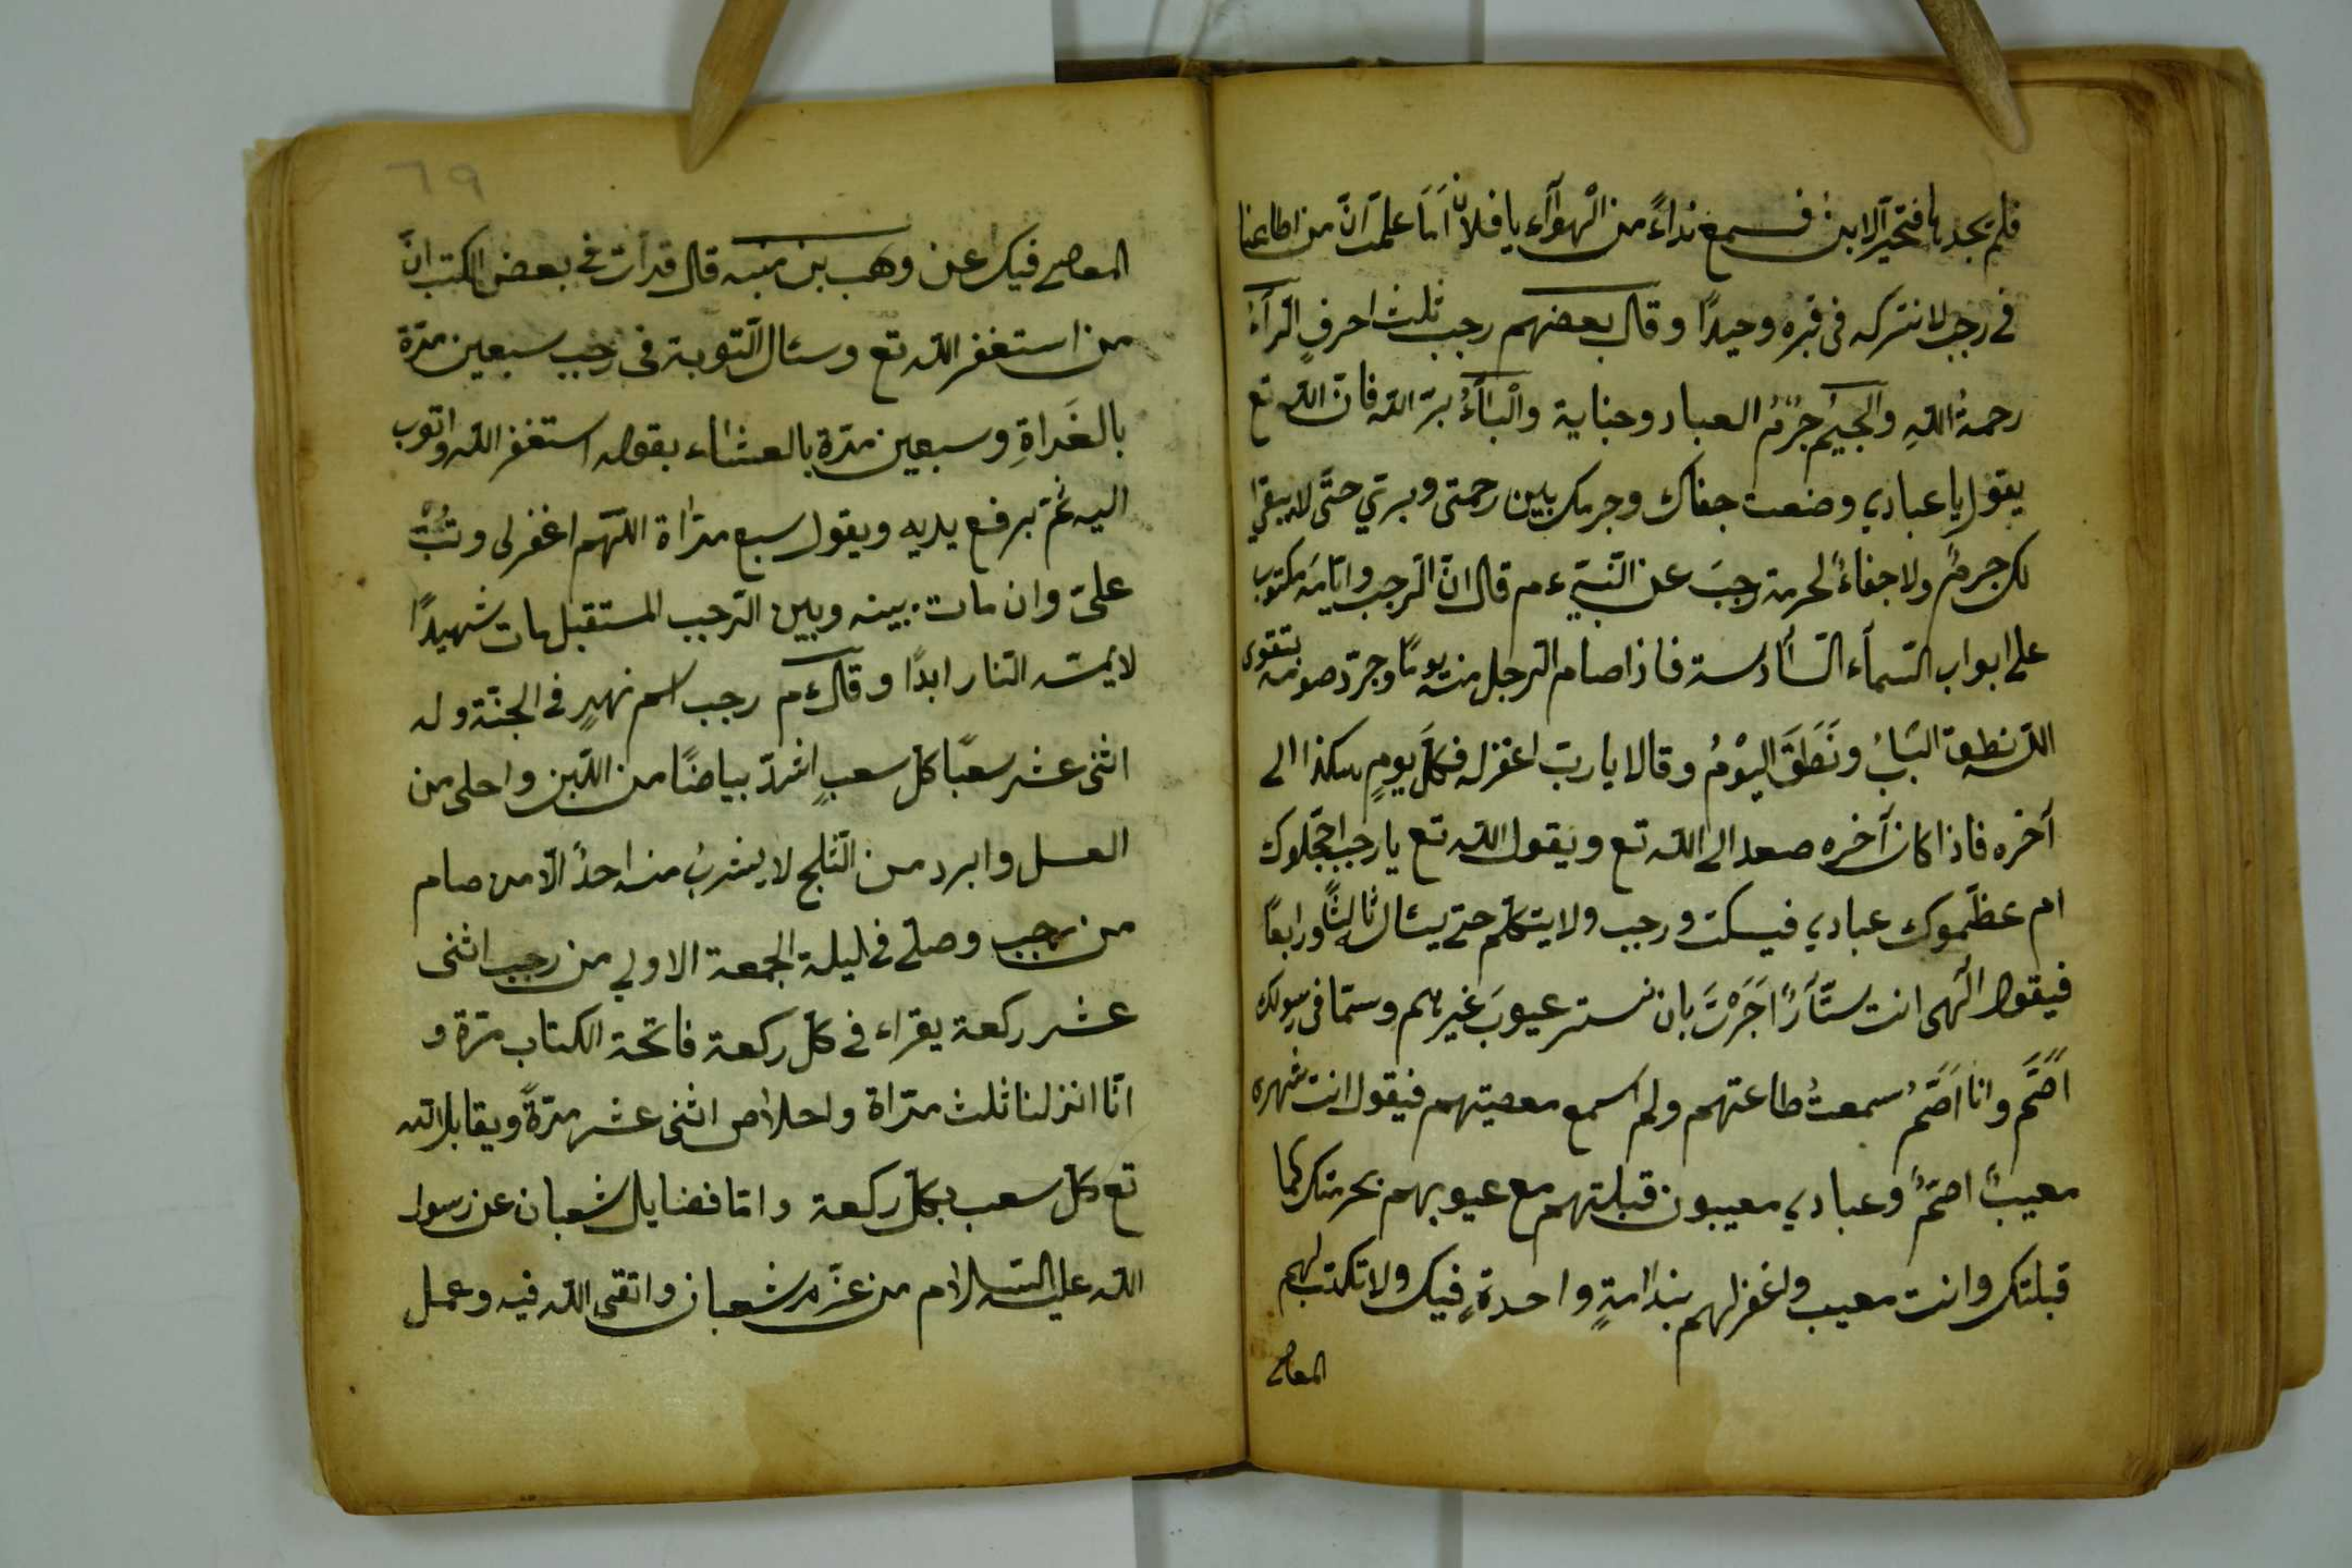 فلم يجدها فتحيّر الابن فسمع نداءً من الْهوآء يا فلان اَمَا علمتَ انّ من اطاعنا
فى رجب لا نتركه فى قبره وحيدًا وقال بعضهم رجب ثلث احرفٍ الرآء
رحمةُ اللّهِ والجيم جُرْمُ العباد وجناية والْبَآءُ برّ اللّه فانّ اللّه تع
يقول يا عبادي وضعت جفاك وجرمك بين رحمتى وبرّي حتّى لا يبقى
لك جرمٌ ولا جفاءٌ لحرمة رجبَ عن النّبيّ ءم قال انّ الرجب وايّامَه مكتوب
على ابواب السّمآء السّآدسة فاذا صام الرجل منه يومًا وجرّد صومه بتقوى
اللّه نطق البَابُ ونَطَقَ اليْومُ وقالا يا ربّ اغفر له فكلّ يومٍ هكذا الى
آخره فاذا كان آخره صعد الى اللّه تع ويقول اللّه تع يا رجب احجّلوك
ام عظّموك عبادي فيسكت ورجب ولا يتكلّم حتى يسئال ثالثًا ورابعًا
فيقول الٓهى انت ستّارًا اَجَرْتَ بان نستر عيوبَ غيرهم وسمّانى رسولك
اَصَّمَ وانا اَصَمُّ سمعتُ طاعتهم ولم اسمع معصيتهم فيقول انت شهره
معيبٌ اصمّ وعبادي معيبون قبلتهم مع عيوبهم بحرمتك كما
قبلتك وانت معيب واغفر لهم بندامةٍ واحدةٍ فيك ولا تكتب لهم
المعاصى
٦٩
المعاصى فيك عن وهب بن منبه قال قرأت فى بعض الكتب انّ
من استغفر اللّه تع وسئال التّوبة فى رجب سبعين مرّة
بالغَداةِ وسبعين مرّة بالعشاء بقوله استغفر اللّه واتوب
اليه ثمّ يرفع يديه ويقول سبع مرّاة اللّهّم اغفر لى وتُبْ
علىّ وان مات بينه وبين الرّجب المستقبل مات شهيدًا
لايمسّه النّار ابدًا وقال ءم رجب اسم نهرٍ فى الجنّة وله
اثنى عشر سعبًا كلّ سعبٍ اشدّ بياضًا من اللّبن واحلى من
العسل وابرد من الثّلج لا يشربُ منه احدٌ الّا من صام
من رجب وصلّى فى ليلة الجمعة الاولي من رجب اثنى
عشر ركعة يقراء فى كلّ ركعة فاتحة الكتاب مرّة و
انّا انزلنا ثلث مرّاة واخلاص اثنى عشر مرّةً ويقابل اللّه
تع كلّ سعب بكلّ ركعة وامّا فضايل شعبان عن رسول
اللّه عليه السّلام من عزّم شعبان واتقى اللّه فيه وعمل